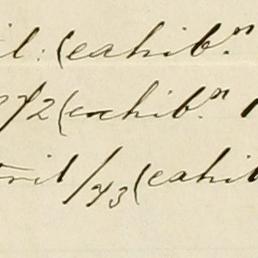 il: (exhibn
/72 (exhibn
ril/73 (exhib